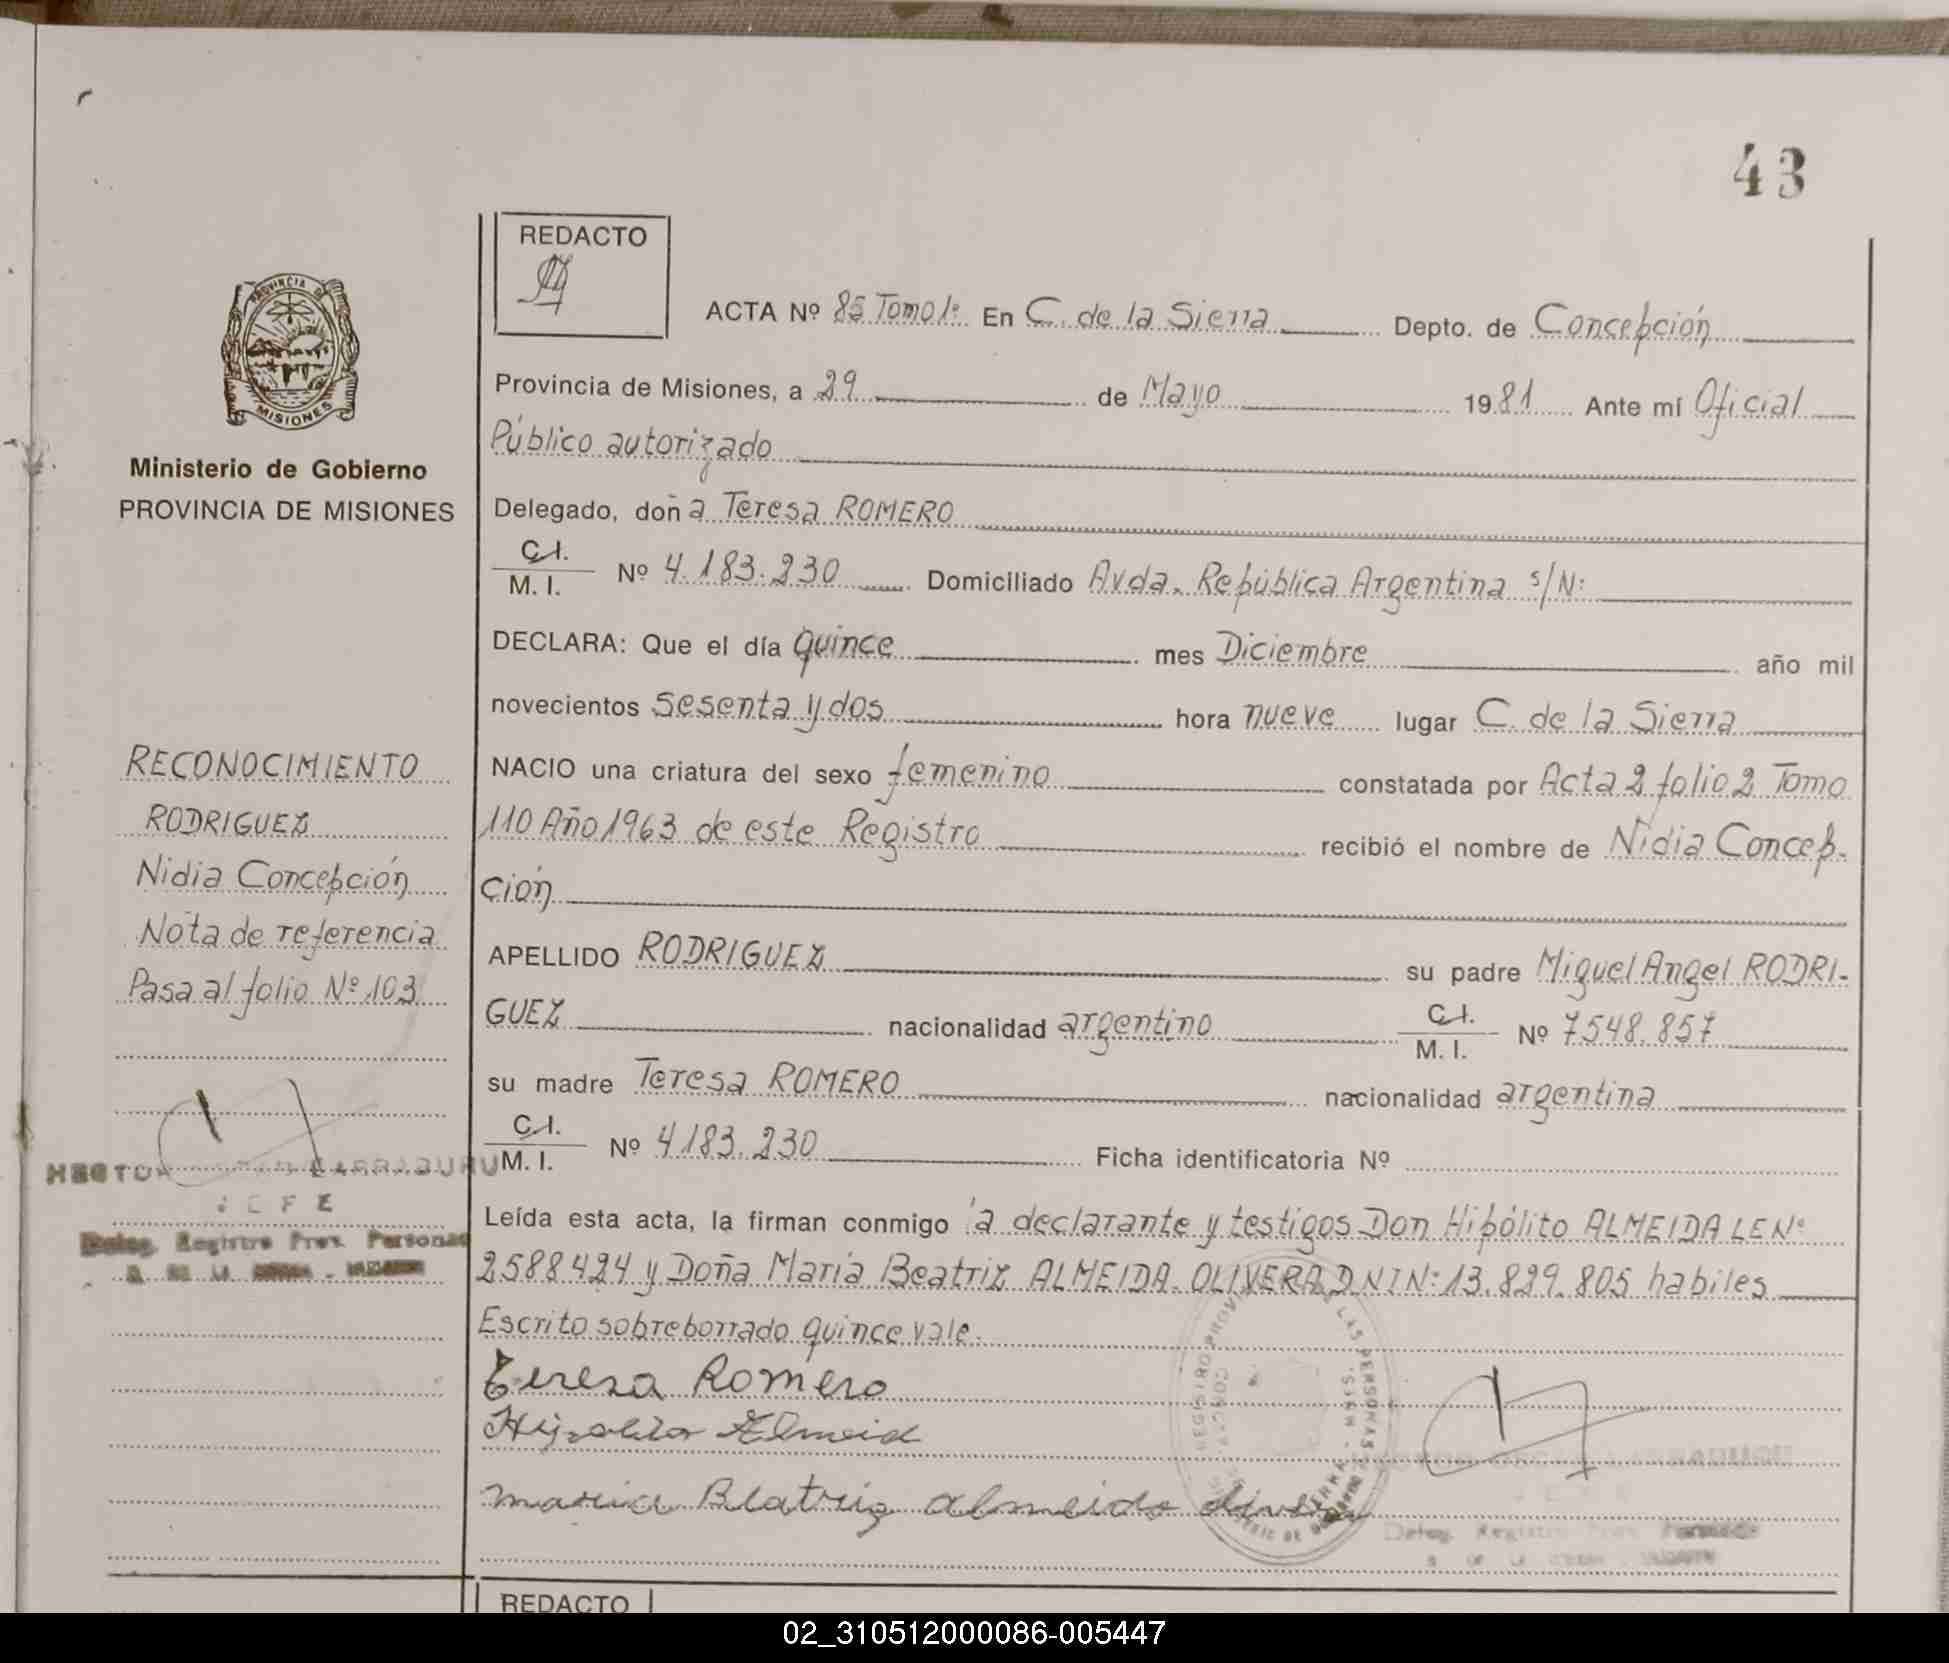 43
REDACTO
ACTA Nº 85 Tomo 1º En C. de la Sierra Depto. de Concepción
Provincia de Misiones, a 29 de Mayo 1981 Ante mí Oficial
Público autorizado
Delegado, doña Teresa ROMERO
C.I.
M. I. Nº 4.183.230 Domiciliado Avda. República Argentina s/Nº
DECLARA: Que el día quince mes Diciembre año mil
novecientos sesenta y dos hora nueve lugar C. de la Sierra
NACIO una criatura del sexo femenino constatada por Acta 2 folio 2 Tomo
110 Año 1963 de este Registro recibió el nombre de Nidia Concep-
ción
APELLIDO RODRIGUEZ su padre Miguel Angel RODRI-
GUEZ nacionalidad argentino C.I. M. I. Nº 7548.857
su madre Teresa ROMERO nacionalidad argentina
C.I.
M. I. Nº 4183.230 Ficha identificatoria Nº
Leída esta acta, la firman conmigo la declarante y testigos Don Hipólito ALMEIDA LE Nº
2588424 y Doña María Beatriz ALMEIDA OLIVERA DNI Nº 13.829.805 habiles
Escrito sobreborrado quince vale.
Teresa Romero
Hipolito Almeid
maria Beatriz almeida
PROVINCIA DE
MISIONES
Ministerio de Gobierno
PROVINCIA DE MISIONES
RECONOCIMIENTO
RODRIGUEZ
Nidia Concepción
Nota de referencia
Pasa al folio Nº 103
HECTOR
JEFE
Deleg. Registro Prov. Personas
REGISTRO PROV. LAS PERSONAS
Deleg. Registro Prov.
REDACTO
02_310512000086-005447